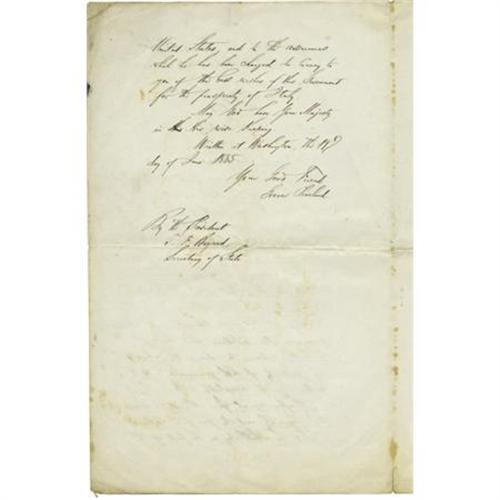 United States, and to the assurances
which he has been charged to convey to
you of the best wishes of this Government
for the prosperity of Italy.
May God have Your Majesty
in His wise keeping.
Written at Washington, the 19th
day of June 1885.
Your Good Friend
Grover Cleveland
By the President
T. F. Bayard
Secretary of State